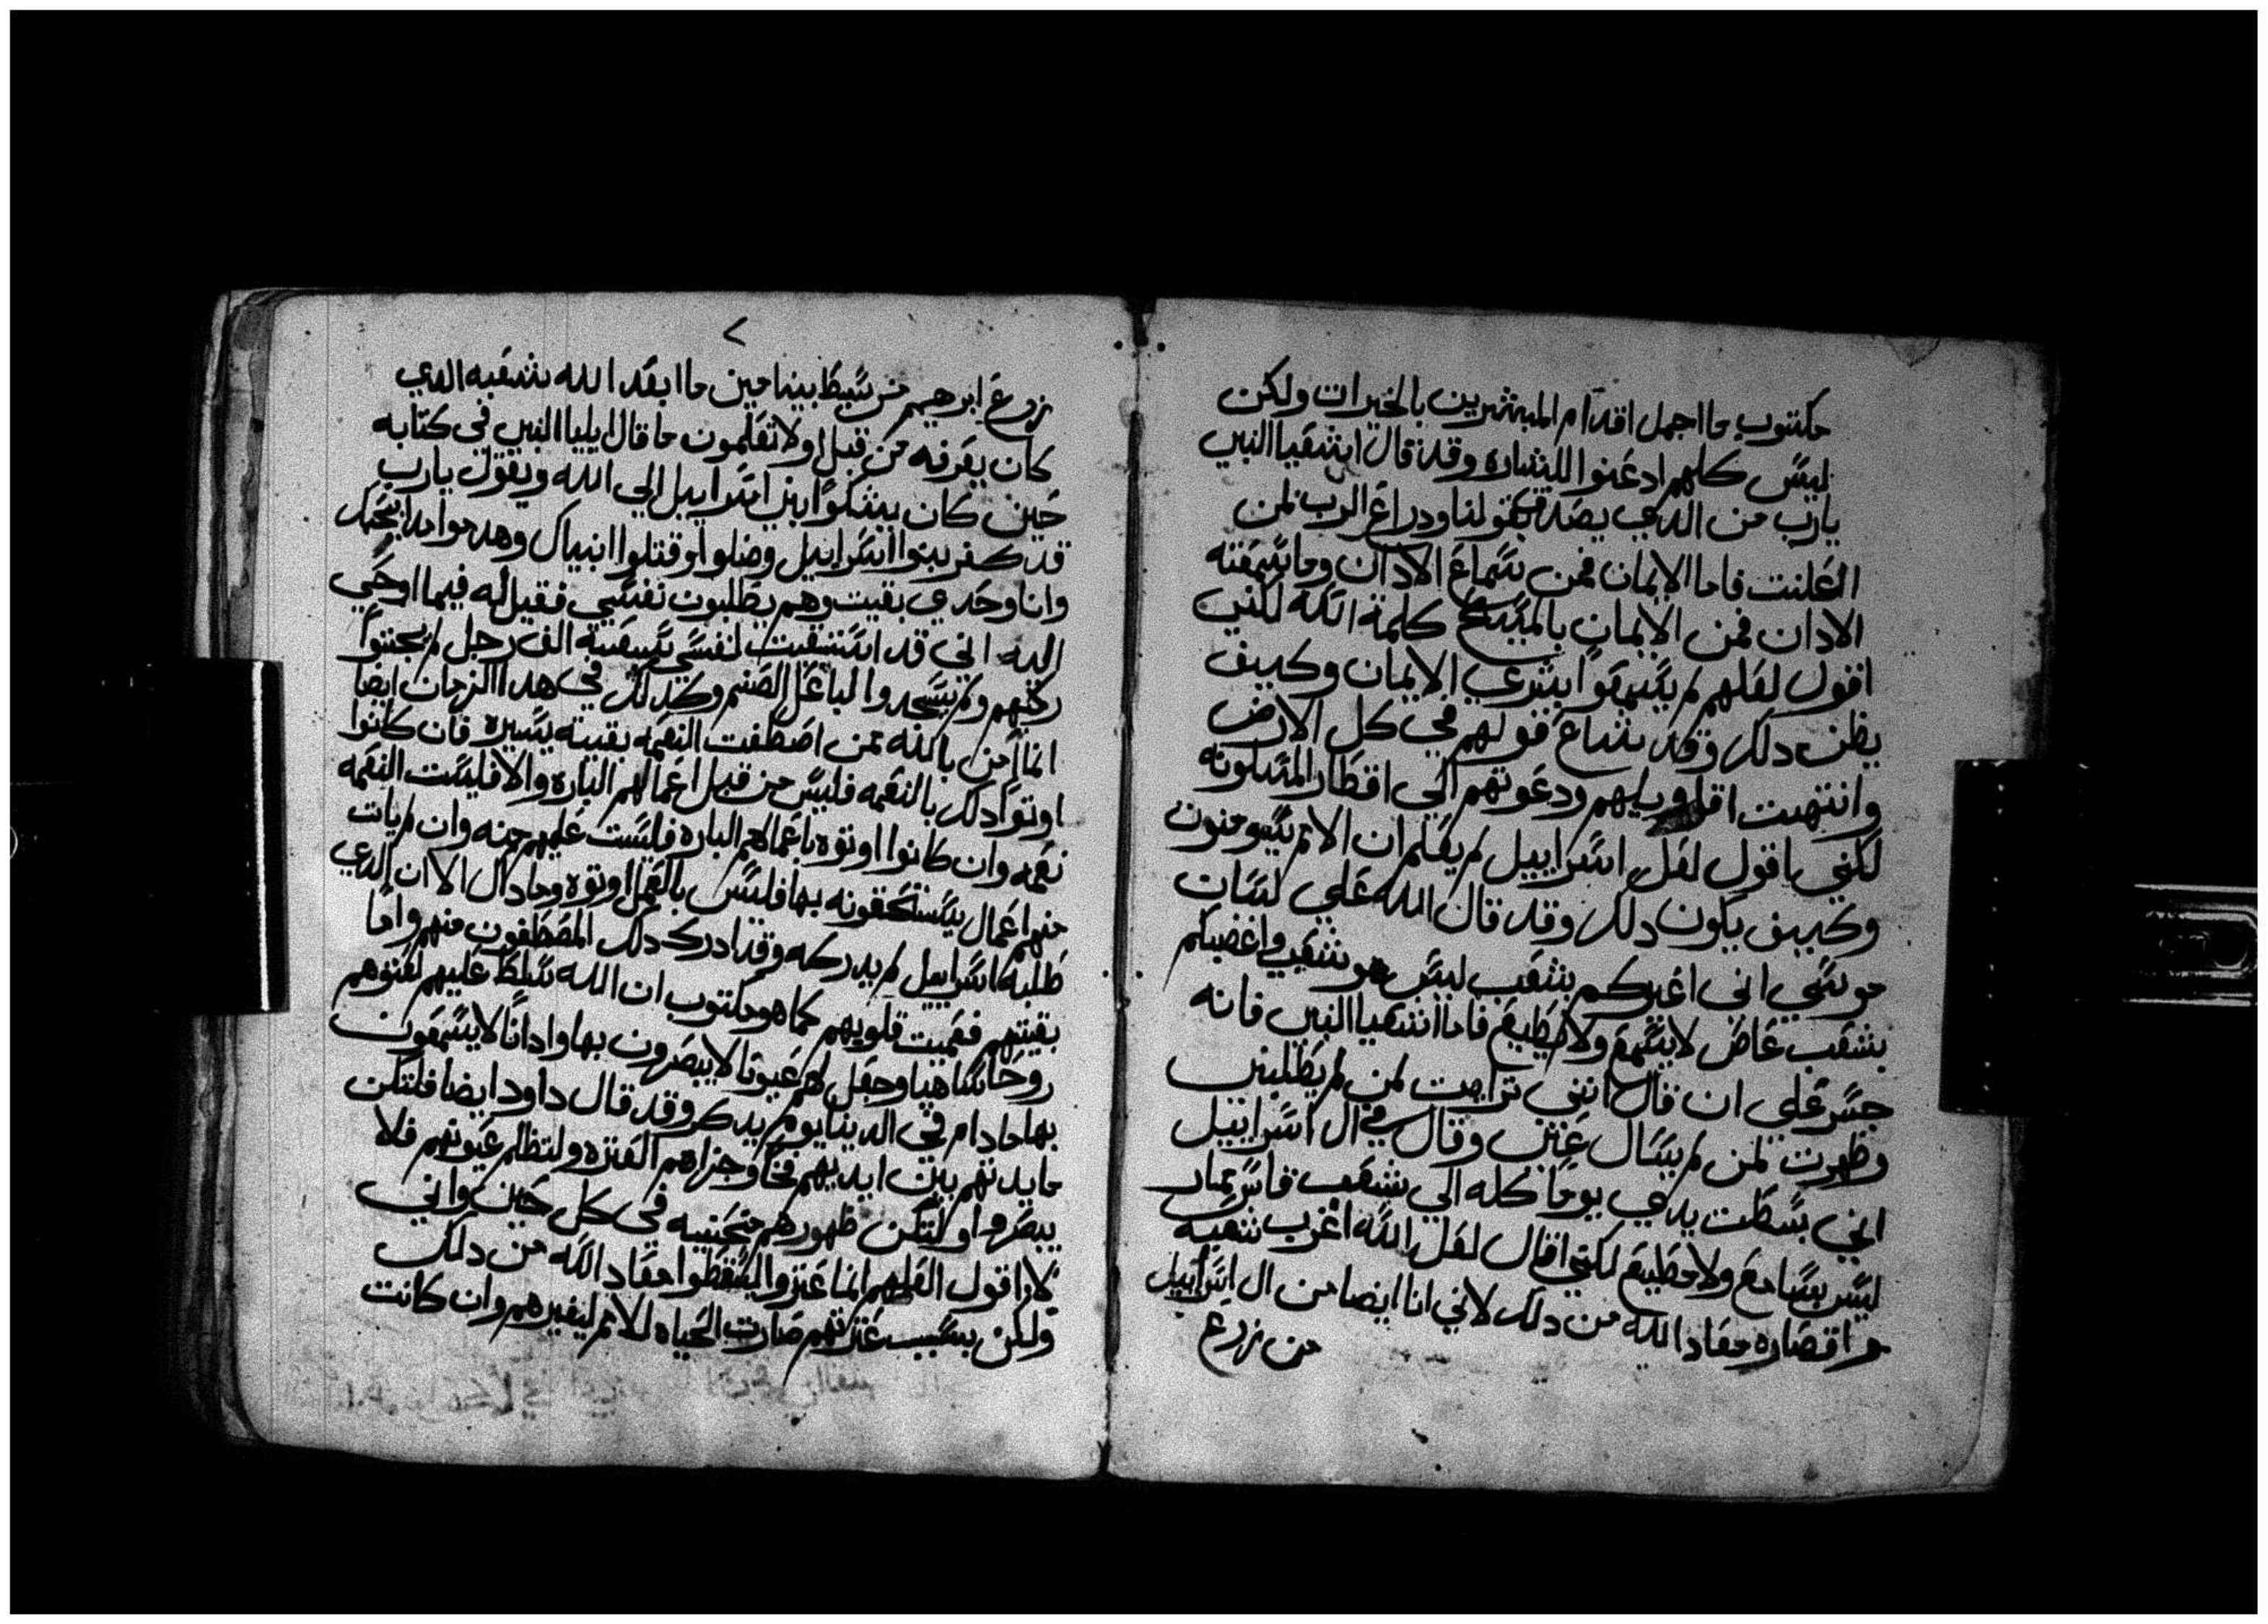 مكتوب ما اجمل اقدام المبشرين بالخيرات ولكن
ليس كلهم ادعنوا للبشاره وقد قال اشعيا النبي
يارب من الدي يصدق بقولنا ودراع الرب لمن
اعلنت فاما الايمان فمن سماع الادان وما تسمعه
الادان فمن الايمان بالمسيح كلمة الله لكني
اقول لعلهم لم يسمعوا بشري الايمان وكيف
يظن دلك وقد شاع قولهم في كل الارض
وانتهت اقاويلهم ودعوتهم الي اقطار المسكونه
لكني اقول لعل اسراييل لم يعلم ان الامم سيومنون
وكيف يكون دلك وقد قال الله علي لسان
موسي اني اغيركم بشعب ليس هو شعبي واغضبكم
بشعب عاص لا يسمع ولا يطيع فاما اشعيا النبي فانه
جسر علي ان قال انني ترايت لمن لم يطلبني
وظهرت لمن لم يسال عني وقال في ال اسراييل
اني بسطت يدي يوما كله الي شعب
ليس بسامع ولا مطيع لكني اقال لعل الله اغرب شعبه
واقصاره معاد الله من دلك لاني انا ايضا من ال اسراييل
من زرع
٧
زرع ابرهيم من سبط بنيامين ما ابعد الله شعبه الدي
كان يعرفه من قبل اولا تعلمون ما قال ايليا النبي في كتابه
حين كان يشكوا بني اسراييل الي الله ويقول يارب
قد كفر بنوا اسراييل وضلوا وقتلوا انبياك وهدموا مدابحك
وانا وحدي بقيت وهم يطلبون نفسي فقيل له فيما اوحي
اليه اني قد استبقيت لنفسي سبعة الف رجل لم يجتوا
ركبهم ولم يسجدوا لباعل الصنم وكدلك في هدا الزمان ايضا
انما امن بالله ممن اصطفت النعمه بقيته يسيره فان كانوا
اوتوا دلك بالنعمه فليس من قبل اعمالهم الباره والا فليست النعمه
نعمه وان كانوا اوتوه باعمالهم الباره فليست عليهم منه وان لم يات
منهم اعمال يستحقونه بها فليس بالعمل اوتوه وما دال الا ان الدي
طلبه اسراييل لم يدركه وقد ادرك دلك المصطفون منهم واما
بقيتهم فعميت قلوبهم كما هو مكتوب ان الله سلط عليهم لعتوهم
روحا ساهيا وجعل لهم عيونا لا يبصرون بها وادانا لا يسمعون
بها مادام في الدنيا يوم يدكر وقد قال داود ايضا فلتكن
مايدتهم بين ايديهم فخا وجزاهم العتره ولتظلم عيونهم فلا
يبصروا ولتكن ظهورهم منحنيه في كل حين واني
لاقول العلهم انما عتروا ليسقطوا معاد الله من دلك
ولكن بسبب عترتهم صارت الحياه للامم ليغيرهم وان كانت